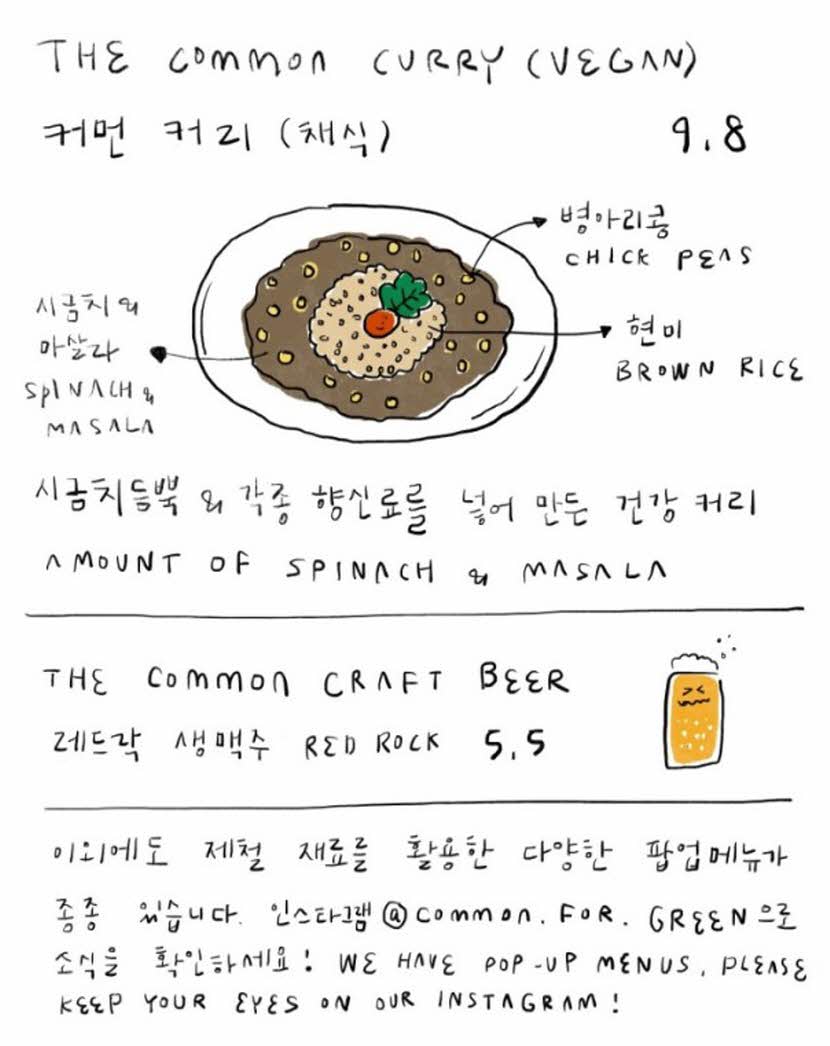 THE COMMON CURRY (VEGAN)
커먼 커리 (채식) 9.8
병아리콩
CHICK PEAS
시금치 &
마살라
SPINACH &
MASALA
현미
BROWN RICE
시금치듬뿍 & 각종 향신료를 넣어 만든 건강 커리
AMOUNT OF SPINACH & MASALA
THE COMMON CRAFT BEER
레드락 생맥주 RED ROCK 5.5
이외에도 제철 재료를 활용한 다양한 팝업메뉴가
종종 있습니다. 인스타그램 @COMMON.FOR.GREEN으로
소식을 확인하세요! WE HAVE POP-UP MENUS, PLEASE
KEEP YOUR EYES ON OUR INSTAGRAM!